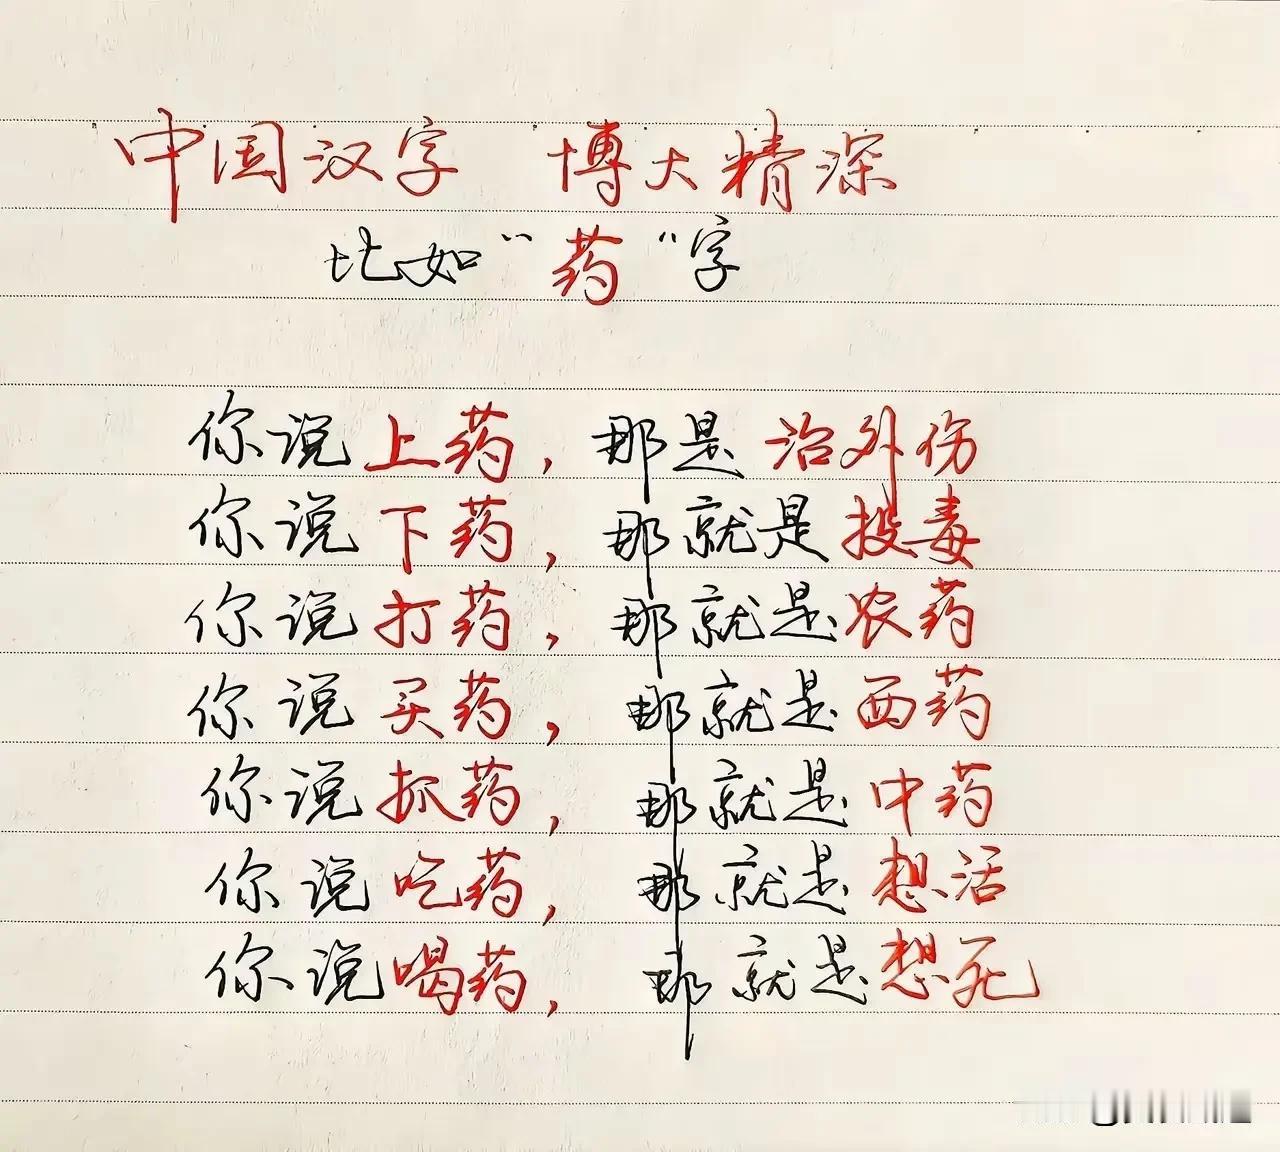 中国汉字 博大精深
比如“药”字
你说上药，那是治外伤
你说下药，那就是投毒
你说打药，那就是农药
你说买药，那就是西药
你说抓药，那就是中药
你说吃药，那就是想活
你说喝药，那就是想死